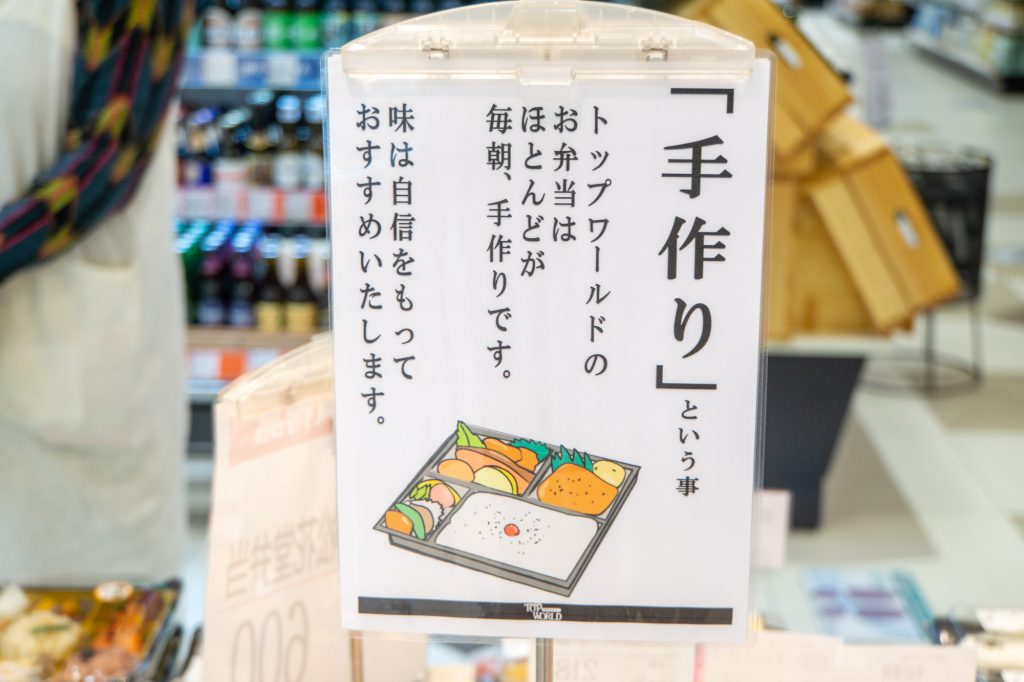 「手作り」という事
トップワールドの
お弁当は
ほとんどが
毎朝、手作りです。
味は自信をもって
おすすめいたします。
TOP
WORLD
600
218